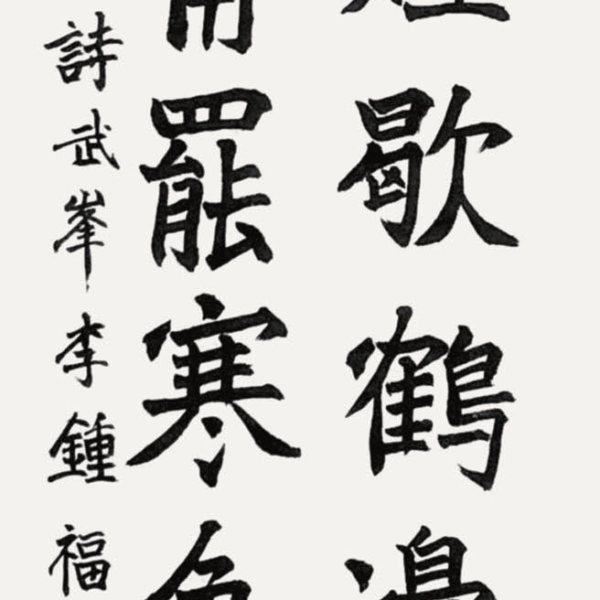 歇鶴邊
罷寒
詩武峯李鍾福